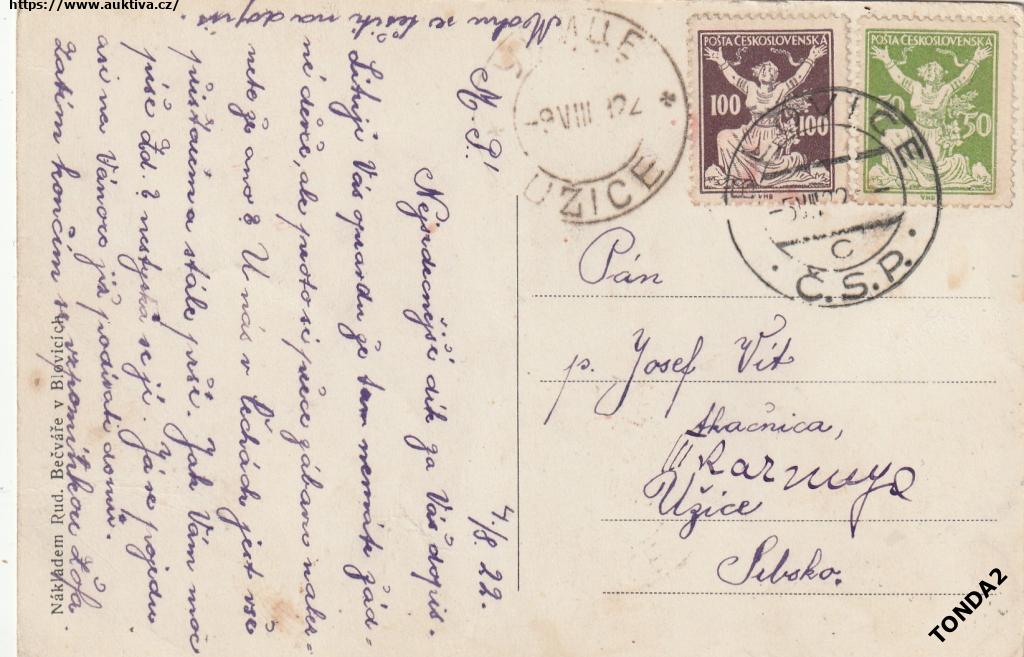 https://www.auktiva.cz/
Mohu se těšit na dopis.
M. P.!
4./8. 22.
Nejsrdečnější dík za Váš dopis.
Lituji Vás opravdu že tam nemáte žád-
né děvče, ale proto si přece zábavu nalez-
nete že ano? U nás v Čechách jest vše
při starém a stále prší. Jak Vám moc
píše Zd.? nestýská se jí. Já se pojedu
asi na Vánoce již podívati domů.
Zatím končím se vzpomínkou Žofa.
Nákladem Rud. Bečváře v Blovicích.
UŽICE
-9 VIII
POŠTA ČESKOSLOVENSKÁ
100
100
POŠTA ČESKOSLOVENSKÁ
50
50
BLOVICE
-5.VIII.22
C
Č.S.P.
Pán
p. Josef Vít
tkačnica,
Užice
Srbsko.
TONDA2